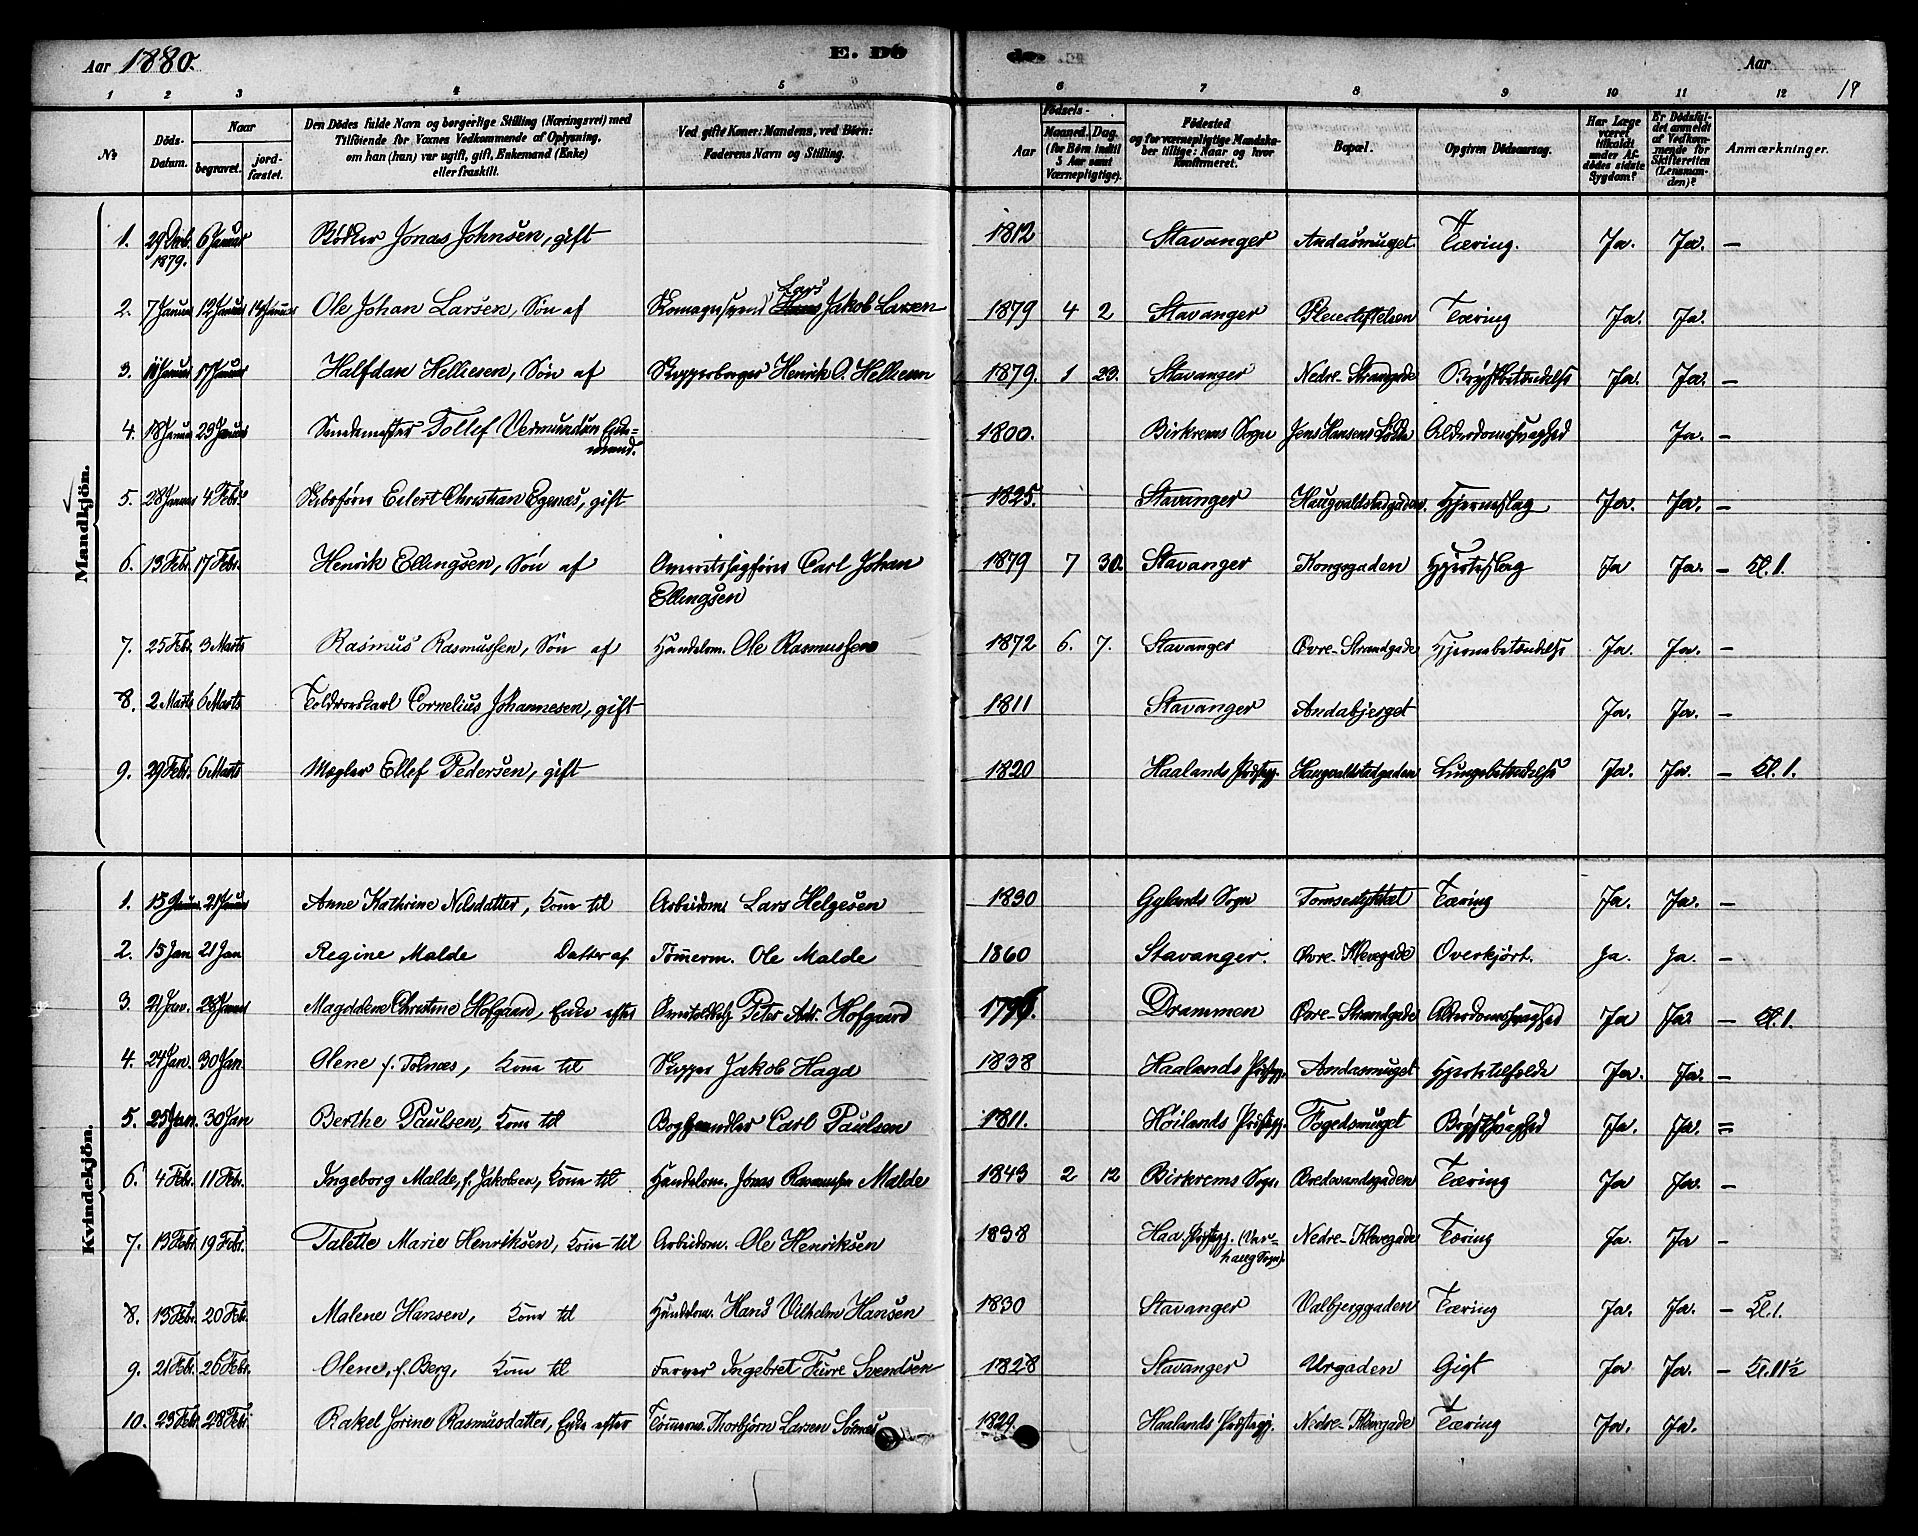 Aar 1880. E. Dö de. Aar 19
1 2 3 4 5 6 7 8 9 10 11 12
№ Döds-Datum. Naar begravet. jordfæstet. Den Dödes fulde Navn og borgerlige Stilling (Næringsvei) med Tilföiende for Voxnes Vedkommende af Oplysning, om han (hun) var ugift, gift, Enkemand (Enke) eller fraskilt. Ved gifte Koner: Mandens, ved Börn: Faderens Navn og Stilling. Födsels- Aar Maaned. Dag. (for Börn indtil 5 Aar samt Værnepligtige). Födested og for værnepligtige Mandskaber tillige: Naar og hvor Konfirmeret. Bopæl. Opgiven Dödsaarsag. Har Læge været tilkaldt under Afdödes sidste Sygdom? Er Dödsfaldet anmeldt af Vedkommende for Skifteretten (Lensmanden)? Anmærkninger.
Mandkjön.
1. 29 Decb. 1879. 6 Januar Bödker Jonas Johnsen, gift 1812 Stavanger Andasmuget. Tæring. Ja. Ja. —
2. 7 Januar 12 Januar 14 Januar Ole Johan Larsen, Sön af Lars Jakob Larsen 1879 4 2 Stavanger Pleiestiftelsen Tæring Ja. Ja.
3. 17 Januar Halfdan Helliesen, Sön af Skipsborger Henrik O. Helliesen 1879. 1 29. Stavanger Nedre-Strandgade Brystbetændelse Ja. Ja. —
4. 18 Januar 23 Januar Tollef Vermundsen Enkemand. 1800. Birkrems Sogn Jens Hansens Lökke Alderdomssvaghed Ja. —
5. 28 Januar 4 Febr. Skibsförer Eilert Christian Egenæs, gift 1825. Stavanger Haugvaldstadgaden. Hjerneslag Ja. Ja. —
6. 13 Febr. 17 Febr. Henrik Ellingsen, Sön af Overretssagförer Carl Johan Ellingsen 1879 7 30. Stavanger Kongsgaden Hjerteslag Ja Ja. — Kl. 1.
7. 25 Febr. 3 Marts Rasmus Rasmussen, Sön af Handelsm. Ole Rasmussen 1872 6. 7. Stavanger Øvre-Strandgade Hjernebetændelse Ja. Ja. —
8. 2 Marts 6 Marts Toldrorskarl Cornelius Johannesen, gift 1811 Stavanger Andabjerget Ja. Ja. —
9. 29 Febr. 6 Marts Mægler Ellef Pedersen, gift 1820 Haalands Præstegj. Haugvaldstadgaden Lungebetændelse Ja. Ja. — Kl. 1.
Kvindekjön.
1. 15 Januar 21 Januar Anne Kathrine Nilsdatter, Kone til Arbeidsm. Lars Helgesen 1830 Gylands Sogn Tomsestykket Tæring Ja. Ja. —
2. 15 Jan 21 Jan Regine Malde Datter af Tömerm. Ole Malde 1860 Stavanger. Øvre-Klevegade Overkjört. Ja. Ja. —
3. 21 Jan. 28 Januar Magdalene Christine Hofgaard, Enke efter Peter Hofgaard Drammen Øvre-Strandgade Alderdomssvaghed Ja Ja. — Kl. 1.
4. 24 Jan. 30 Jan. Olene f. Tolnæs, Kone til Skipper Jakob Haga 1838 Haalands Præstegj. Andasmuget Hjertetilfælde Ja. Ja. —
5. 25 Jan. 30 Jan Berthe Paulsen, Kone til Boghandler Carl Paulsen 1811. Höilands Præstegj. Fogedsmuget Brystsvaghed Ja. Ja. =
6. 4 Febr. 11 Febr. Ingeborg Malde, f. Jakobsen, Kone til Handelsm. Jonas Rasmussen Malde 1843 2 12 Birkrems Sogn. Bredevandsgaden Tæring Ja Ja. —
7. 13 Febr. 19 Febr. Talette Marie Henriksen, Kone til Arbeidsm. Ole Henriksen 1838 Haa Præstegj. (Varhaug Sogn). Nedre-Klevegade Tæring Ja. Ja —
8. 13 Febr. 20 Febr. Malene Hansen, Kone til Handelsm. Hans Vilhelm Hansen 1830 Stavanger Valbjerggaden Tæring Ja. Ja. — Kl. 1.
9. 21 Febr. 26 Febr. Olene, f. Berg, Kone til Farver Ingebret Furre Svendsen 1828 Stavanger Urgaden Gigt Ja Ja. — Kl. 11½
10. 23 Febr. 28 Febr. Rakel Jorine Rasmusdatter, Enke efter Tömerm. Thorbjörn Larsen 1829. Haalands Præstegj. Nedre-Klevegade Tæring Ja. Ja.